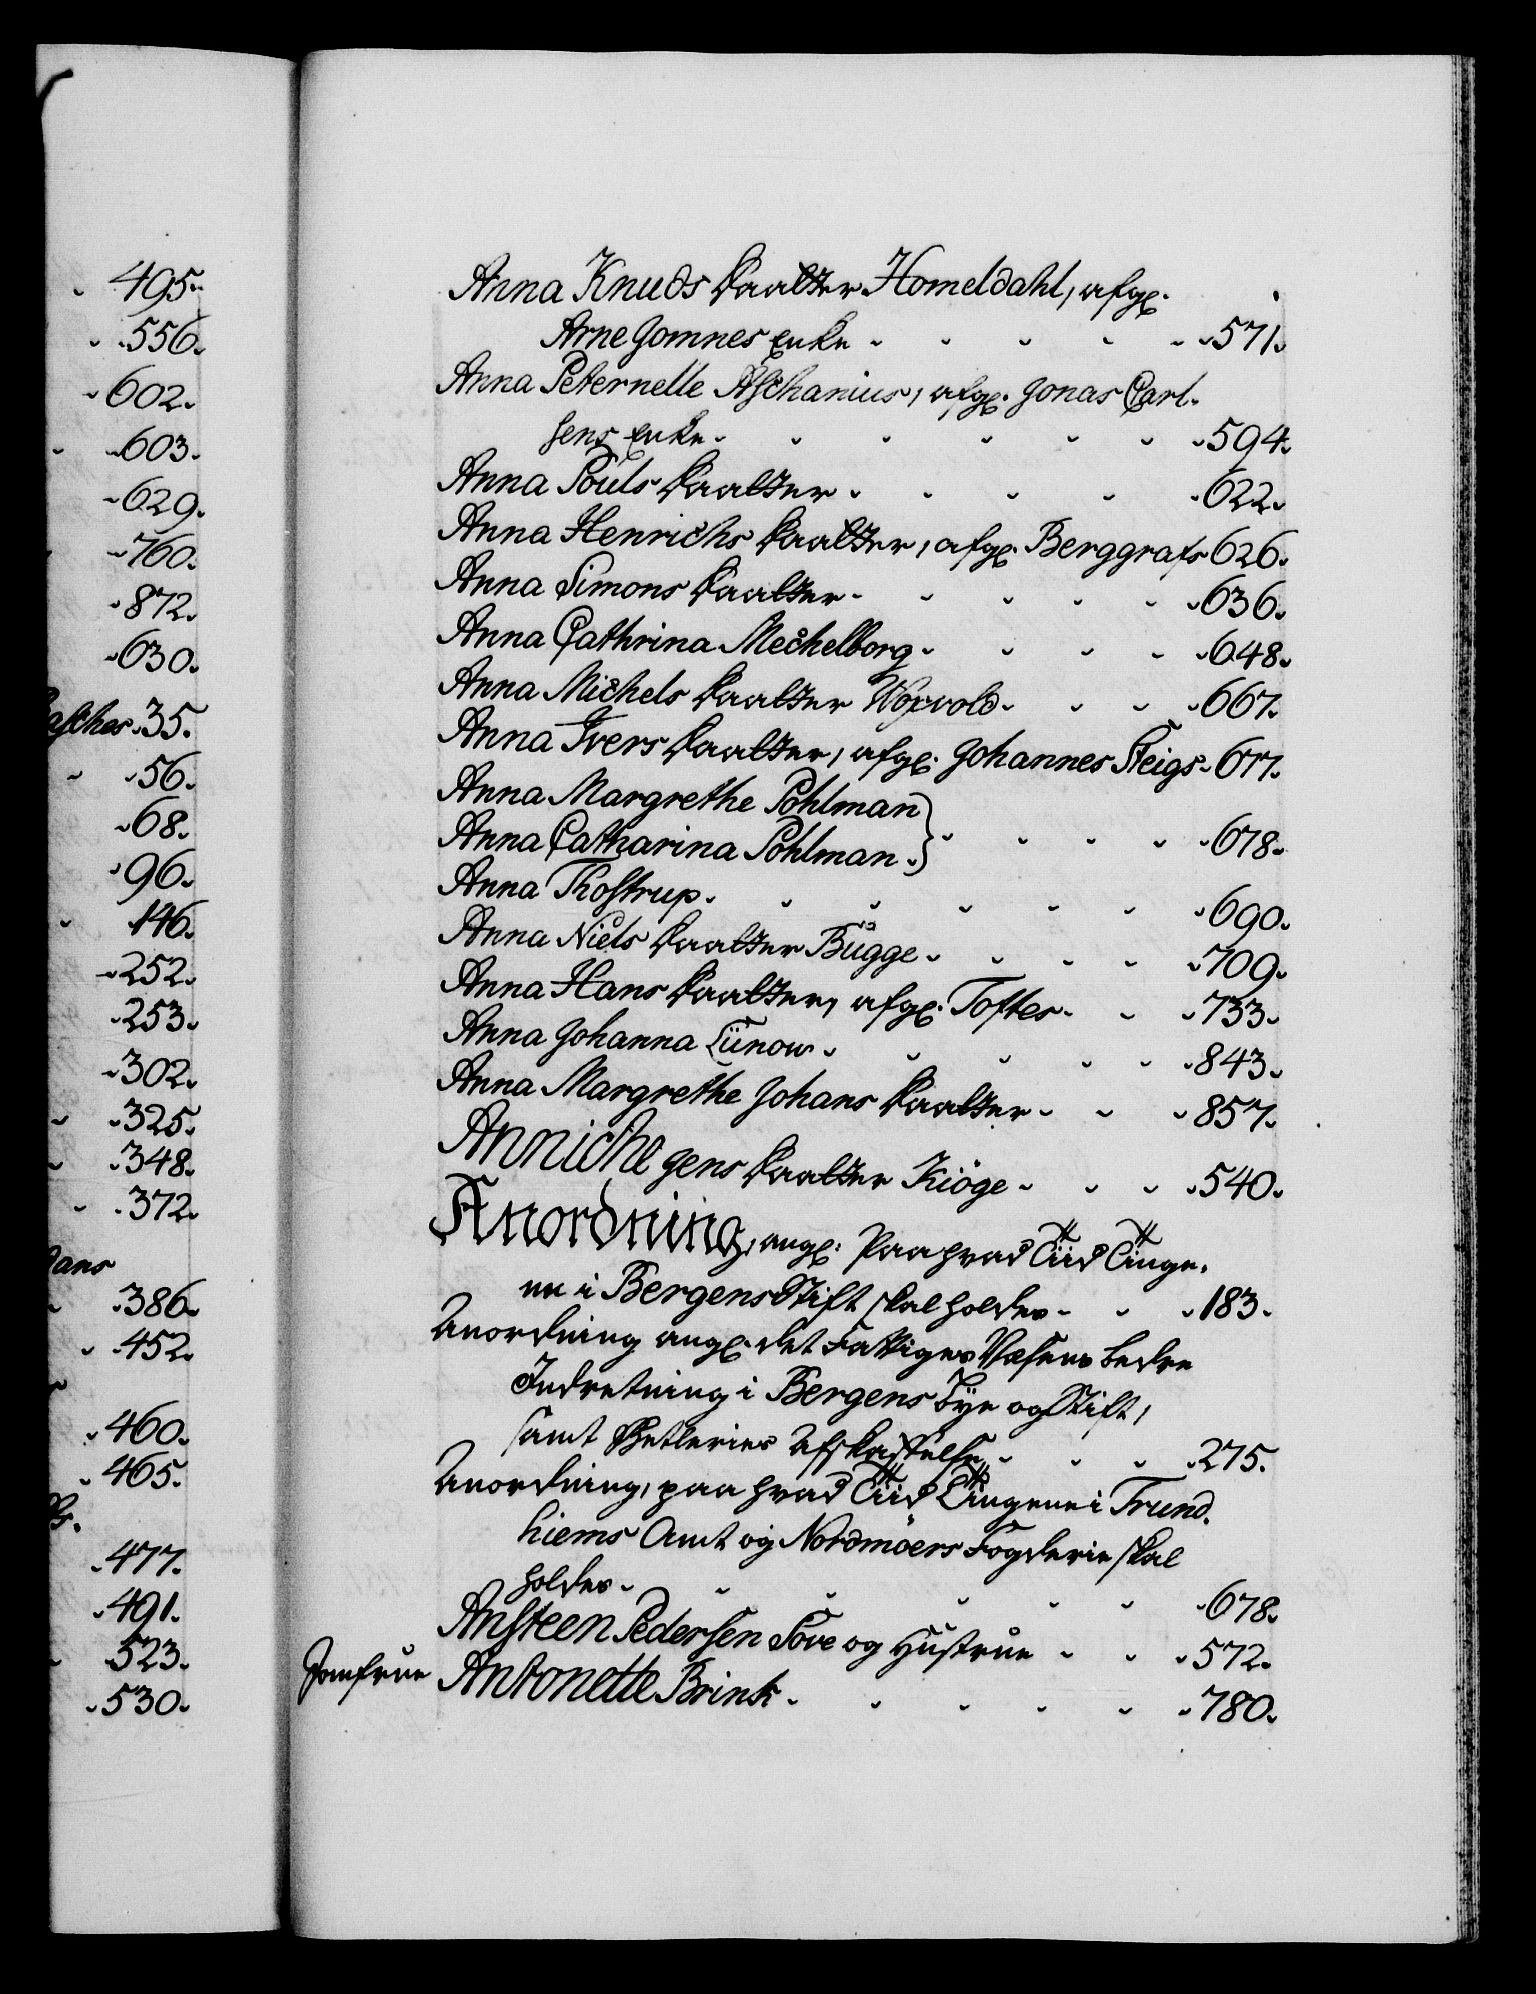 495.
556.
602.
603.
629.
760.
872.
630.
35.
56.
68.
96.
146.
252.
253.
302.
325.
348.
372.
386.
452.
460.
465.
477.
491.
523.
530.
Anna Knuds Daatter Homeldahl, afg.
Arne Gomnes Enke - - - - - 571.
Anna Peternelle Aschanius, afg. Jonas Carl-
sens Enke - - - - - - 594.
Anna Pouls Daatter - - - - 622.
Anna Henrichs Daatter, afg. Berggrafs 626.
Anna Simons Daatter - - - - 636.
Anna Cathrina Mechelborg - - - - 648.
Anna Michels Daatter Woxvold - - - 667.
Anna Ivers Daatter, afg. Johannes Steigs - 677.
Anna Margrethe Pohlman
Anna Catharina Pohlman } - - - - 678.
Anna Thostrup - - - - - - 690.
Anna Niels Daatter Bügge - - - - 709.
Anna Hans Daatter, afg. Toftes - - - 733.
Anna Johanna Lünow - - - - - 843.
Anna Margrethe Johans Daatter - - - 857.
Anniche Jens Daatter Kiöge - - - 540.
Anordning, ang. Paa hvad Tiid Tinge-
ne i Bergens Stift skal holdes - - - 183.
Anordning ang. det Fattiges Væsens bedre
Indretning i Bergens Bye og Stift,
samt Betleries Afskaffelse - - - 275.
Anordning, paa hvad Tiid Tingene i Trund-
hiems Amt og Nordmöers Fogderie skal
holdes - - - - - - 678.
Ansteen Pedersen Sove og Hustrue - - - 572.
Jomfrue Antonette Brink - - - - - 780.